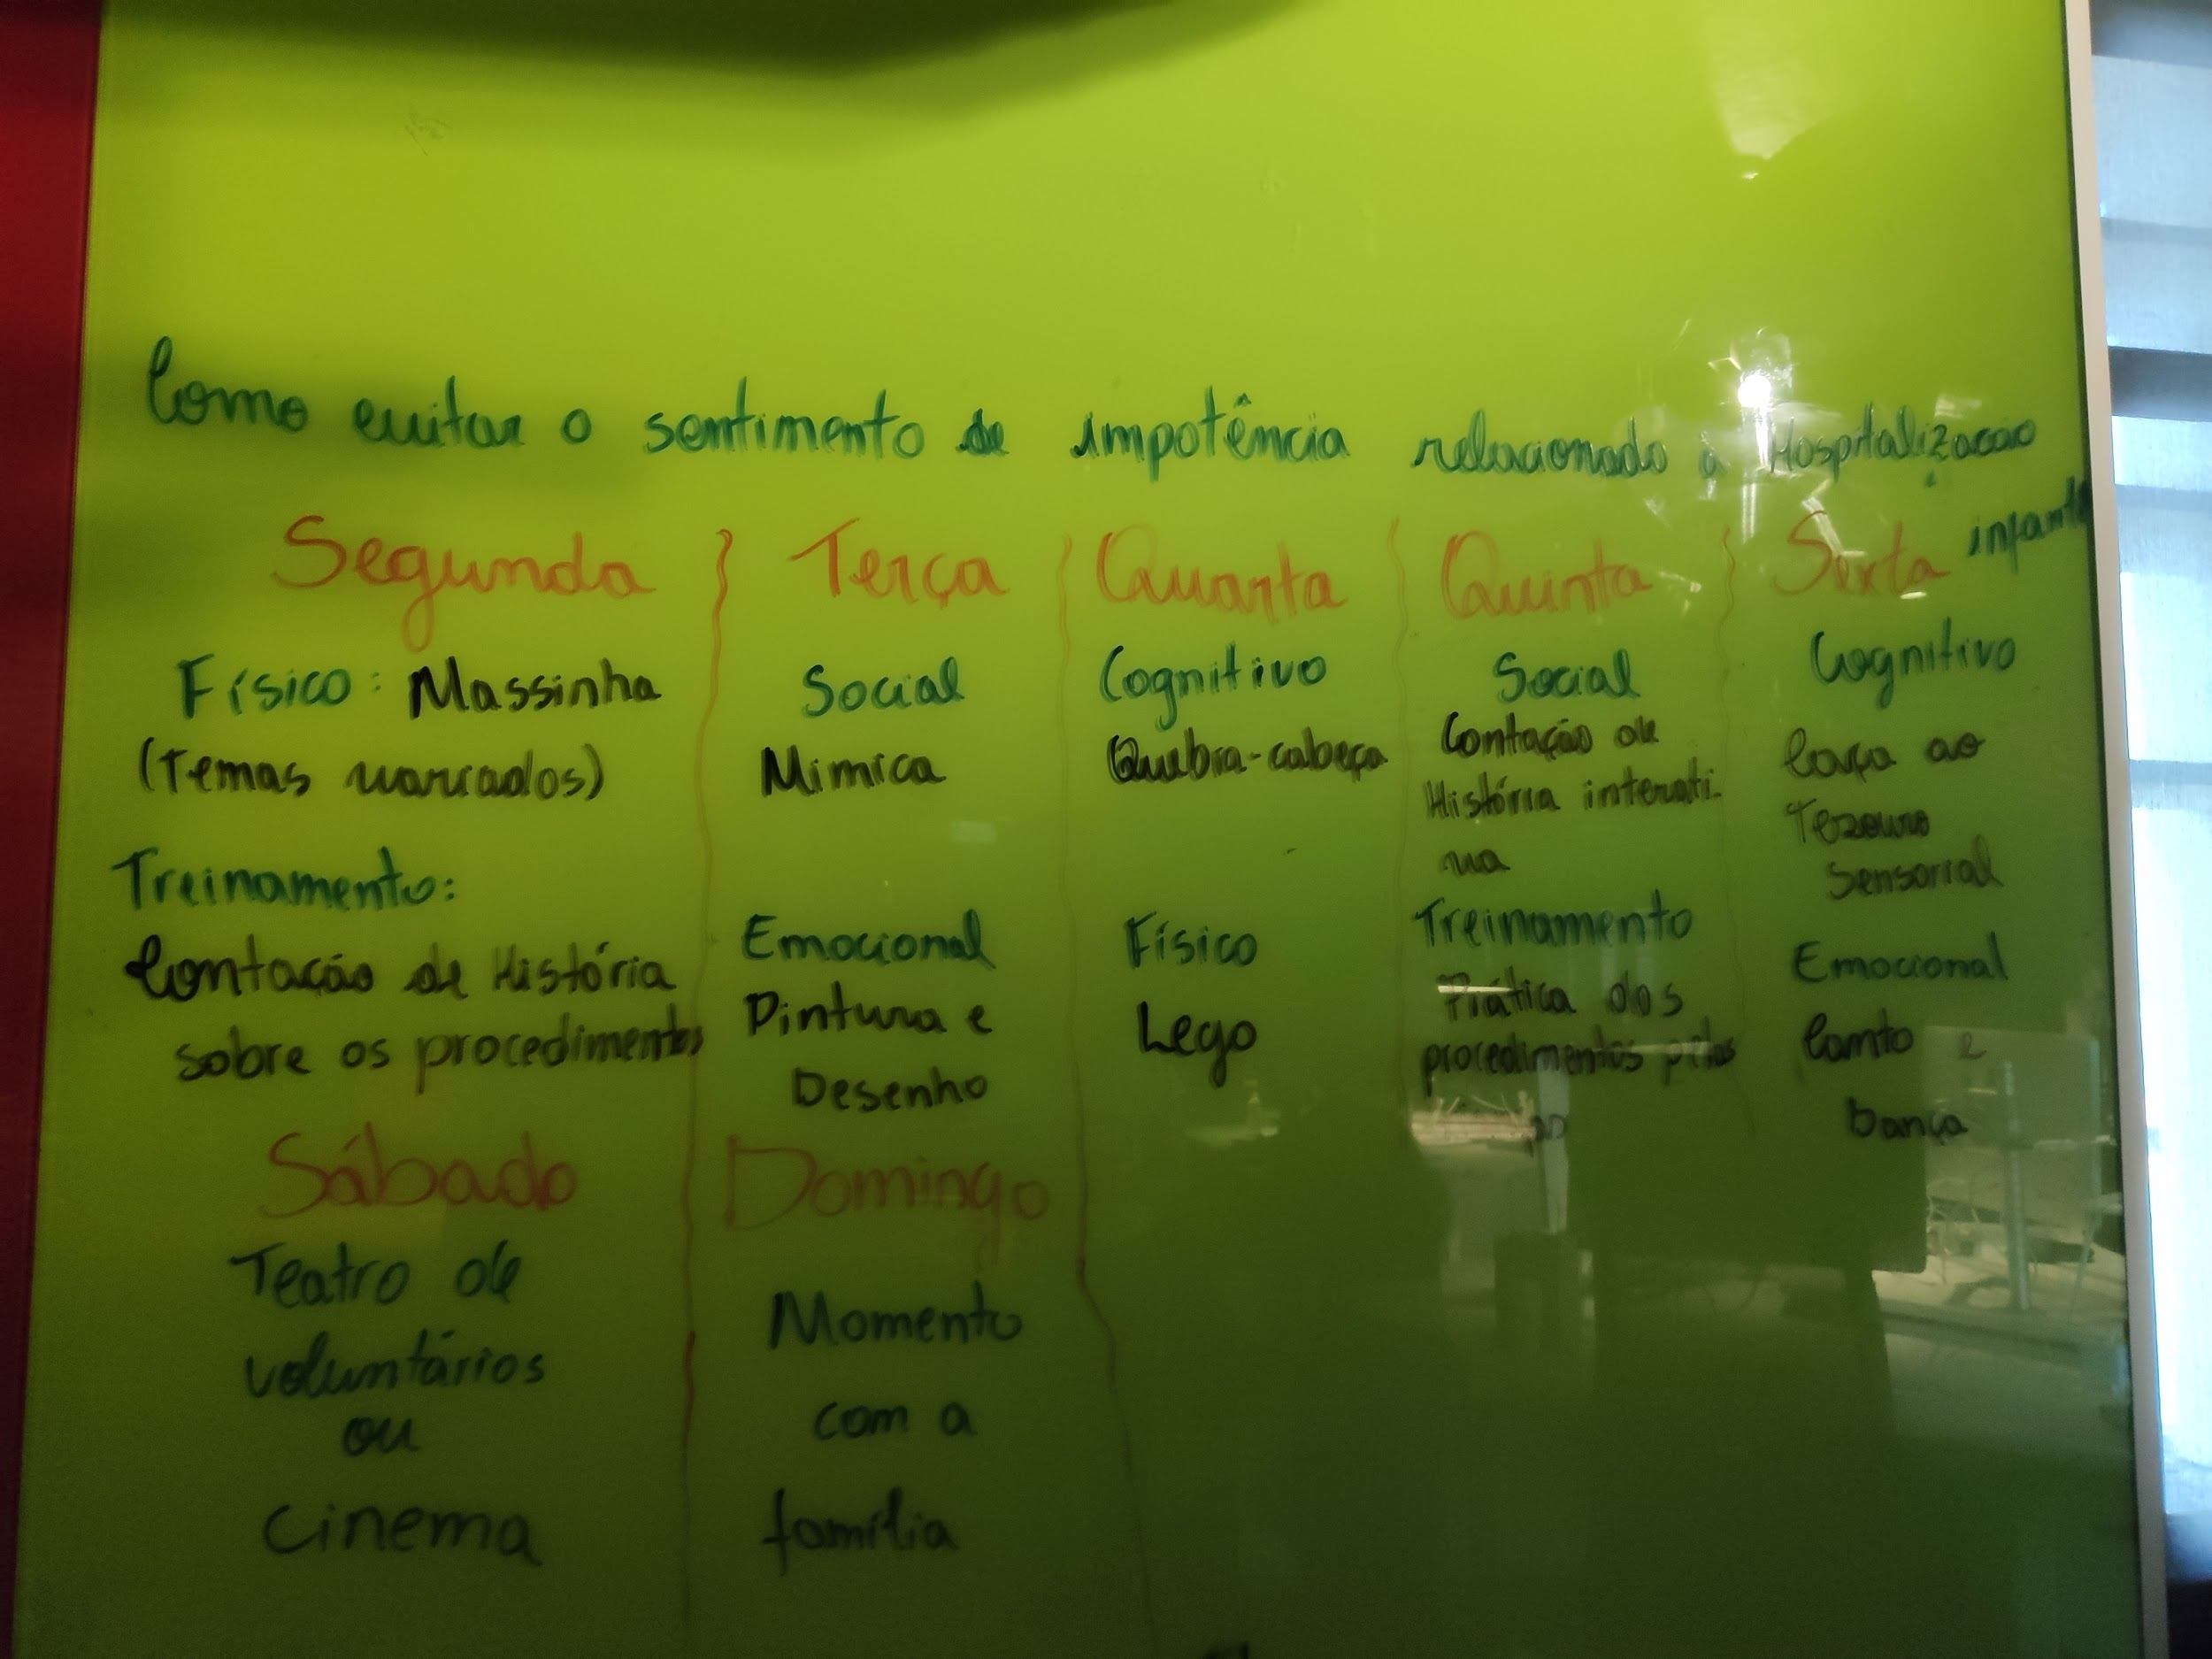 Como evitar o sentimento de impotência relacionado a Hospitalização
infantil
Segunda
Físico: Massinha
(Temas variados)
Treinamento:
Contação de História
sobre os procedimentos
Terça
Social
Mimica
Emocional
Pintura e
Desenho
Quarta
Cognitivo
Quebra-cabeça
Físico
Lego
Quinta
Social
Contação de
História interati-
va
Treinamento
Prática dos
procedimentos pelos
Sexta
Cognitivo
Caça ao
Tezouro
Sensorial
Emocional
Canto e
Dança
Sábado
Teatro de
voluntários
ou
cinema
Domingo
Momento
com a
família